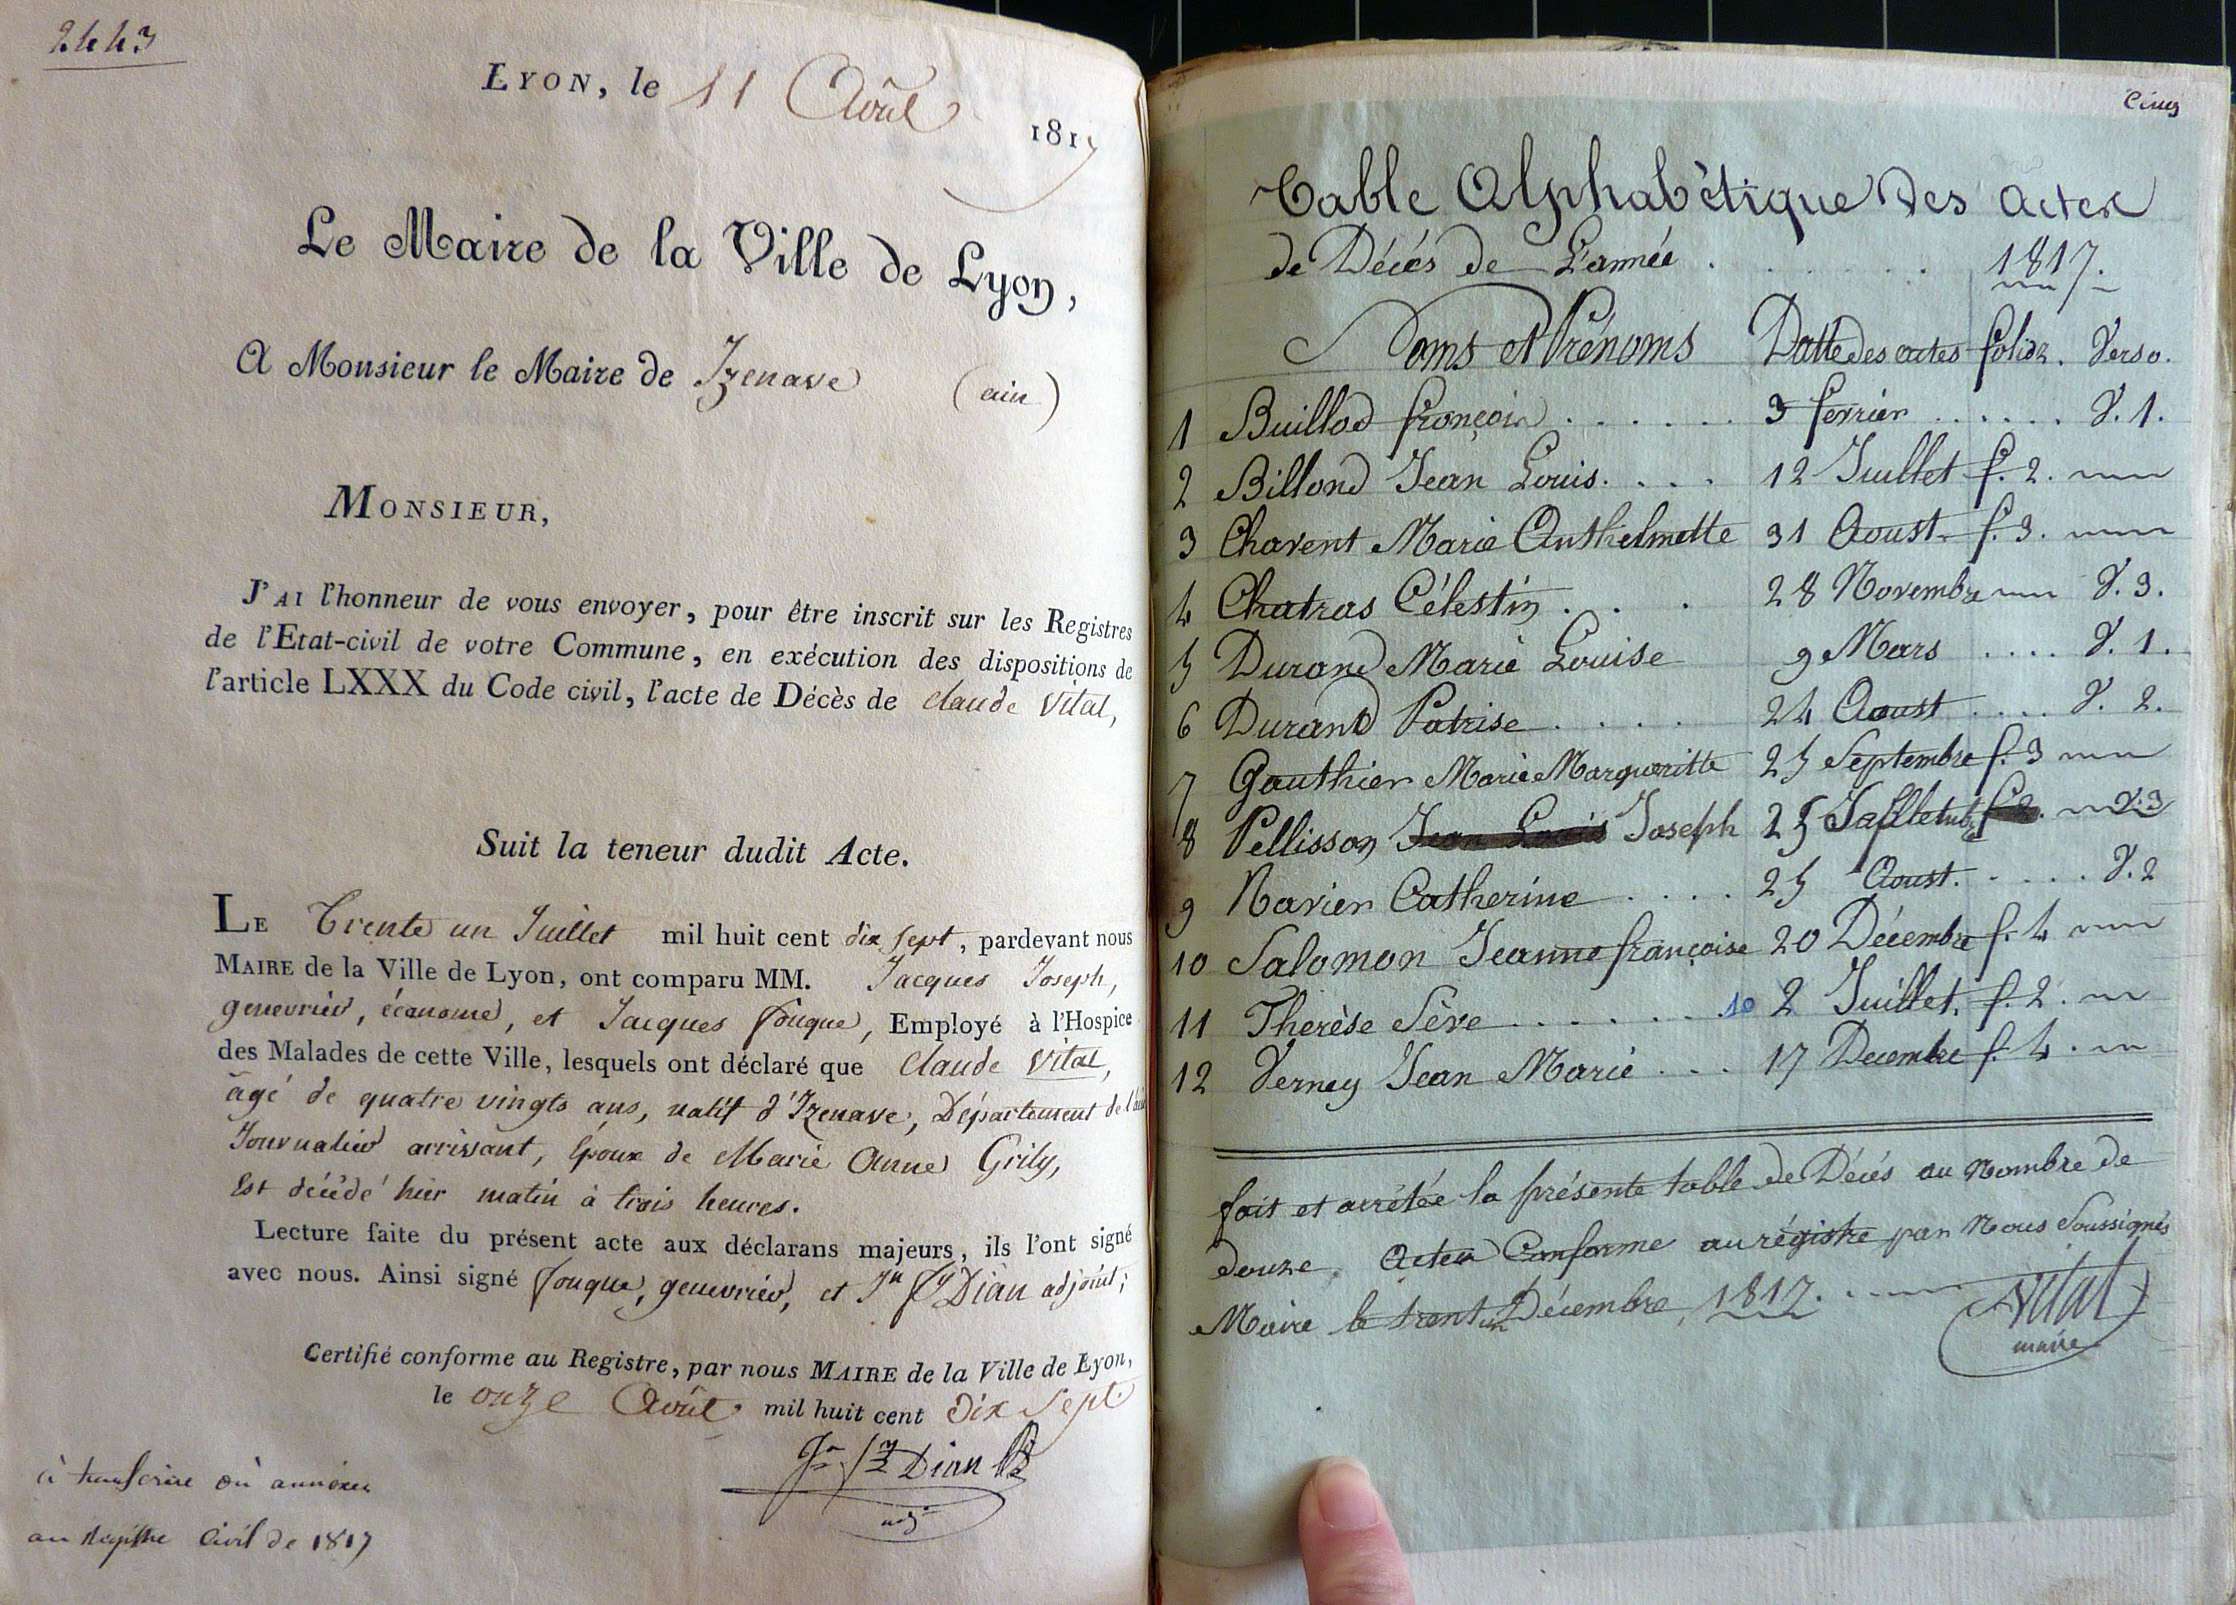 2443
LYON, le 11 Août 1817
Le Maire de la Ville de Lyon,
A Monsieur le Maire de Izenave (ain)
MONSIEUR,
J'AI l'honneur de vous envoyer, pour être inscrit sur les Registres
de l'Etat-civil de votre Commune, en exécution des dispositions de
l'article LXXX du Code civil, l'acte de Décès de Claude Vital,
Suit la teneur dudit Acte.
LE Trente un Juillet mil huit cent dix sept, pardevant nous
MAIRE de la Ville de Lyon, ont comparu MM. Jacques Joseph,
genevrier, économe, et Jacques fouque, Employé à l'Hospice
des Malades de cette Ville, lesquels ont déclaré que Claude Vital,
âgé de quatre vingts ans, natif d'Izenave, Département de l'ain
Journalier arrivant, époux de Marie Anne Grily,
Est décédé hier matin à trois heures.
Lecture faite du présent acte aux déclarans majeurs, ils l'ont signé
avec nous. Ainsi signé fouque, genevrier, et Jn fs Dian adjoint;
Certifié conforme au Registre, par nous MAIRE de la Ville de Lyon,
le onze Août mil huit cent Dix Sept
Dian
adj
à transcrire ou annexer
au Registre Civil de 1817
Cinq
Table Alphabétique des actes
de Décés de L'année . . . . . . 1817.
Noms et Prénoms Datte des actes folios. Verso.
1 Buillod françois . . . . . . 3 fevrier . . . . . . V. 1.
2 Billond Jean Louis. . . . 12 Juillet f. 2.
3 Chavent Marie Anthelmette 31 Aoust. f. 3.
4 Chatras Célestin . . . 28 Novembre V. 3.
5 Durand Marie Louise 9 Mars . . . . V. 1.
6 Durand Patrise . . . . 24 Aoust . . . . V. 2.
7 Gauthier Marie Margueritte 25 Septembre f. 3
8 Pellisson Jean Louis Joseph 25 V. 3
9 Navier Catherine . . . . 25 Aoust. . . . . V. 2
10 Salomon Jeanne françoise 20 Décembre f. 4
11 Therèse Sève . . . . . . 10 2 Juillet. f. 2.
12 Verney Jean Marie . . . 17 Decembre f. 4.
fait et arrêtée la présente table de Décés au Nombre de
douze. Actes Conforme au régistre par Nous Soussignés
Maire le trent un Décembre, 1817.
Vital
maire